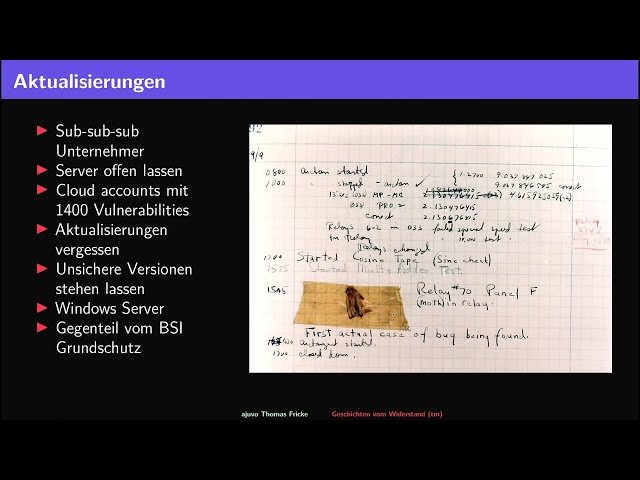 Aktualisierungen
Sub-sub-sub
Unternehmer
Server offen lassen
Cloud accounts mit
1400 Vulnerabilities
Aktualisierungen
vergessen
Unsichere Versionen
stehen lassen
Windows Server
Gegenteil vom BSI
Grundschutz
92
9/9
0800 Antan started
1000 " stopped - antan ✓
{ 1.2700 9.037 847 025
9.037 846 995 correct
13"uc (032) MP - MC
(033) PRO 2 2.130476415
correct 2.130676415
Relays 6-2 in 033 failed special speed test
in Relay " 10.000 test.
Relays changed
1700 Started Cosine Tape (Sine check)
1525 Started Multi Adder Test.
1545 Relay #70 Panel F
(moth) in relay.
First actual case of bug being found.
antangent started.
1700 closed down.
ajuvo Thomas Fricke Geschichten vom Widerstand (tm)